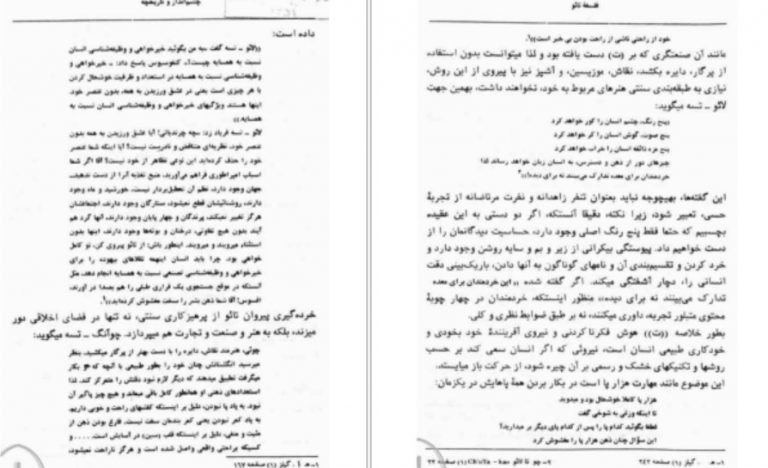 فلسفهٔ تائو
خود از راحتی ناشی از راحت بودن بی خبر است»۱.
مانند آن صنعتگری که بر (ت) دست یافته بود و لذا میتوانست بدون استفاده
از پرگار، دایره بکشد، نقاش، موزیسین، و آشپز نیز با پیروی از این روش،
نیازی به طبقه‌بندی سنتی هنرهای مربوط به خود، نخواهند داشت، بهمین جهت
لائو ـ تسه میگوید:
«پنج رنگ، چشم انسان را کور خواهد کرد
پنج صوت، گوش انسان را کر خواهد کرد
پنج مزه ذائقه انسان را خراب خواهد کرد
چیزهای دور از ذهن و دسترس، به انسان زیان خواهد رساند لذا
خردمندان برای معده تدارک می‌بینند نه برای دیده»۲
این گفته‌ها، بهیچوجه نباید بعنوان تنفر زاهدانه و نفرت مرتاضانه از تجربهٔ
حسی، تعبیر شود، زیرا نکته، دقیقا آنستکه، اگر دو دستی به این عقیده
بچسبیم که حتما فقط پنج رنگ اصلی وجود دارد، حساسیت دیدگانمان را از
دست خواهیم داد. پیوستگی بیکرانی از زیر و بم و سایه روشن وجود دارد و
خرد کردن و تقسیم‌بندی آن و نامهای گوناگون به آنها دادن، باریک‌بینی دقت
انسانی را، دچار آشفتگی میکند. اگر گفته شده «این خردمندان برای معده
تدارک می‌بینند نه برای دیده» منظور اینستکه، خردمندان در چهار چوبهٔ
محتوی متبلور تجربه، داوری میکنند، نه بر طبق ضوابط نظری و کلی.
بطور خلاصه «(ت)» هوش فکرنا کردنی و نیروی آفرینندهٔ خود بخودی و
خودکاری طبیعی انسان است، نیروئی که اگر انسان سعی کند بر حسب
روشها و تکنیکهای خشک و رسمی بر آن چیره شود، از حرکت باز میایستد.
این موضوع مانند مهارت هزار پا است در بکار بردن همهٔ پاهایش در یکزمان:
هزار پا کاملا خوشحال بود و میدوید
تا اینکه وزغی به شوخی گفت
لطفا بگوئید کدام پا را پس از کدام پای دیگر بر میدارید؟
این سؤال چنان ذهن هزار پا را مغشوش کرد
۱ـ هـ . گیلز (۱) صفحه ۲۴۲
۲ـ چو تا کائو
داده است:
«لائو ـ تسه گفت سه من بگوئید خیرخواهی و وظیفه‌شناسی انسان
نسبت به همسایه چیست؟، کنفوسیوس پاسخ داد: ـ خیرخواهی و
وظیفه‌شناسی نسبت به همسایه در استعداد و ظرفیت خوشحال کردن
با هر چیزی است یعنی در عشق ورزیدن به همه، بدون عنصر خود.
اینها هستند ویژگیهای خیرخواهی و وظیفه‌شناسی انسان نسبت به
همسایه»
لائو ـ تسه فریاد زد: سچه چرندیاتی! آیا عشق ورزیدن به همه بدون
عنصر خود، نظریه‌ای متناقض و نادرست نیست؟ آیا اینکه شما عنصر
خود را حذف کرده‌اید این نوعی تظاهر از خود نیست؟ آقا اگر شما
اسباب امپراطوری فراهم می‌آورید، منبع تغذیه آنرا از دست ندهید.
جهان وجود دارد، نظم آن تعطیل‌بردار نیست، خورشید و ماه وجود
دارند، روشنائیشان قطع نمیشود، ستارگان وجود دارند، اجتماعشان
هرگز تغییر نمیکند، پرندگان و چهار پایان وجود دارند، آنها گرد هم
آیند بدون هیچ تفاوتی، درختان و بوته‌ها وجود دارند، اینها بدون
استثناء میرویند و میرویند. اینطور باش: از تائو پیروی کن، تو کامل
خواهی بود. چرا باید انسان اینهمه تقلاهای بیهوده را برای
خیرخواهی و وظیفه‌شناسی تصنعی نسبت به همسایه انجام دهد. مثل
آنستکه در موقع جستجوی یک فراری طبلی را هم بصدا در آورند،
افسوس! آقا شما ذهن بشر را سخت مغشوش کرده‌اید»۱.
خرده‌گیری پیروان تائو از پرهیزکاری سنتی، نه تنها در فضای اخلاقی دور
میزند، بلکه به هنر و صنعت و تجارت هم میپردازد. چوآنگ ـ تسه میگوید:
چوئی، هنرمند نقاش، دایره را با دست بهتر از پرگار میکشید. بنظر
میرسید انگشتانش چنان خود را بطور طبیعی با آنچه که «و بکار
میگرفت تطبیق میدهند که دیگر لازم نبود دقتش را متمرکز کند. لذا
استعدادهای ذهنی او همانطور کامل باقی میماند و هیچ چیز پاگیر آن
نبود. به یاد پا نبودن، دلیل بر اینستکه کفشهای راحت و خوبی داریم.
به یاد کمر نبودن یعنی کمر بندمان سفت نیست. فارغ بودن ذهن از
مثبت و منفی، دلیل بر اینستکه قلب (سین) در آسایش است.......و
کسیکه براحتی واقعی واصل شده است و هرگز ناراحت نمیشود،
۱ـ هـ آ . گیلز (۱) صفحه ۱۶۷